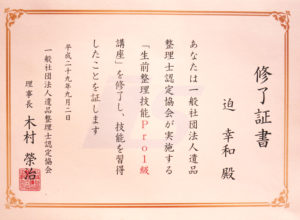 修了証書
迫 幸和 殿
あなたは一般社団法人遺品
整理士認定協会が実施する
「生前整理技能Pro1級
講座」を修了し、技能を習得
したことを証します
平成二十九年九月二日
一般社団法人遺品整理士認定協会
理事長 木村 榮治